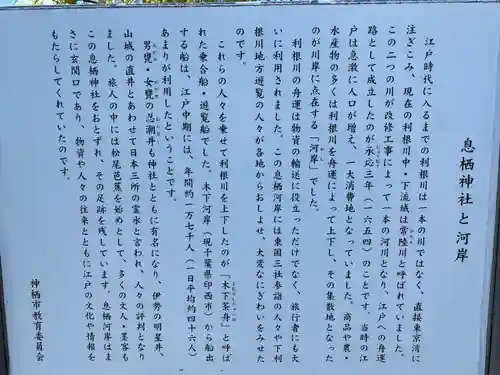 息栖神社と河岸
江戸時代に入るまでの利根川は一本の川ではなく、直接東京湾に
注ぎこみ、現在の利根川中・下流域は常陸川と呼ばれていました。
この二つの川が改修工事によって一本の河川となり、江戸への舟運
路として成立したのが承応三年(一六五四)のことです。当時の江
戸は急激に人口が増え、一大消費地となっていました。商品や農・
水産物の多くは利根川を舟運によって上下し、その集散地となった
のが川岸に点在する「河岸」でした。
利根川の舟運は物資の輸送に役立っただけでなく、旅行者にも大
いに利用されました。この息栖河岸には東国三社参詣の人々や下利
根川地方遊覧の人々が各地からおしよせ、大変なにぎわいをみせた
のです。
これらの人々を乗せて利根川を上下したのが「木下茶舟」と呼ば
れた乗合船・遊覧船でした。木下河岸(現千葉県印西市)から船出
する船は、江戸中期には、年間約一万七千人(一日平均約四十六人)
あまりが利用したということです。
男甕・女甕の忍潮井も神社とともに有名になり、伊勢の明星井、
山城の直井とあわせて日本三所の霊水と言われ、人々の評判となり
ました。旅人の中には松尾芭蕉を始めとして、多くの文人・墨客も
この息栖神社をおとずれ、その足跡を残しています。息栖河岸はま
さに玄関口であり、物資や人々の往来とともに江戸の文化や情報を
もたらしてくれていたのです。
神栖市教育委員会